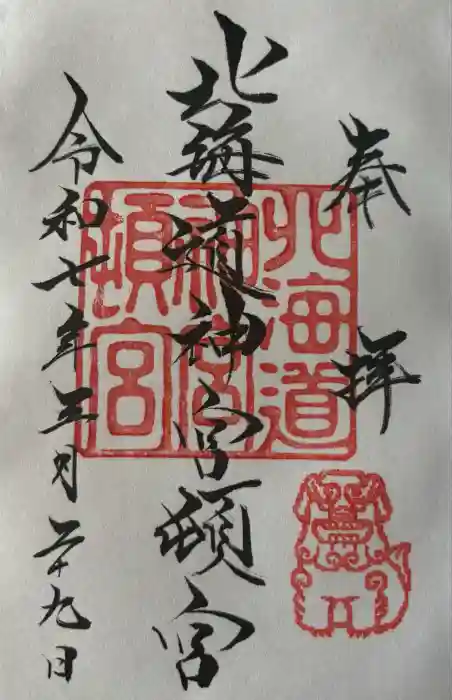 奉拝
北海道神宮頓宮
北海道神宮頓宮
令和七年三月二十九日